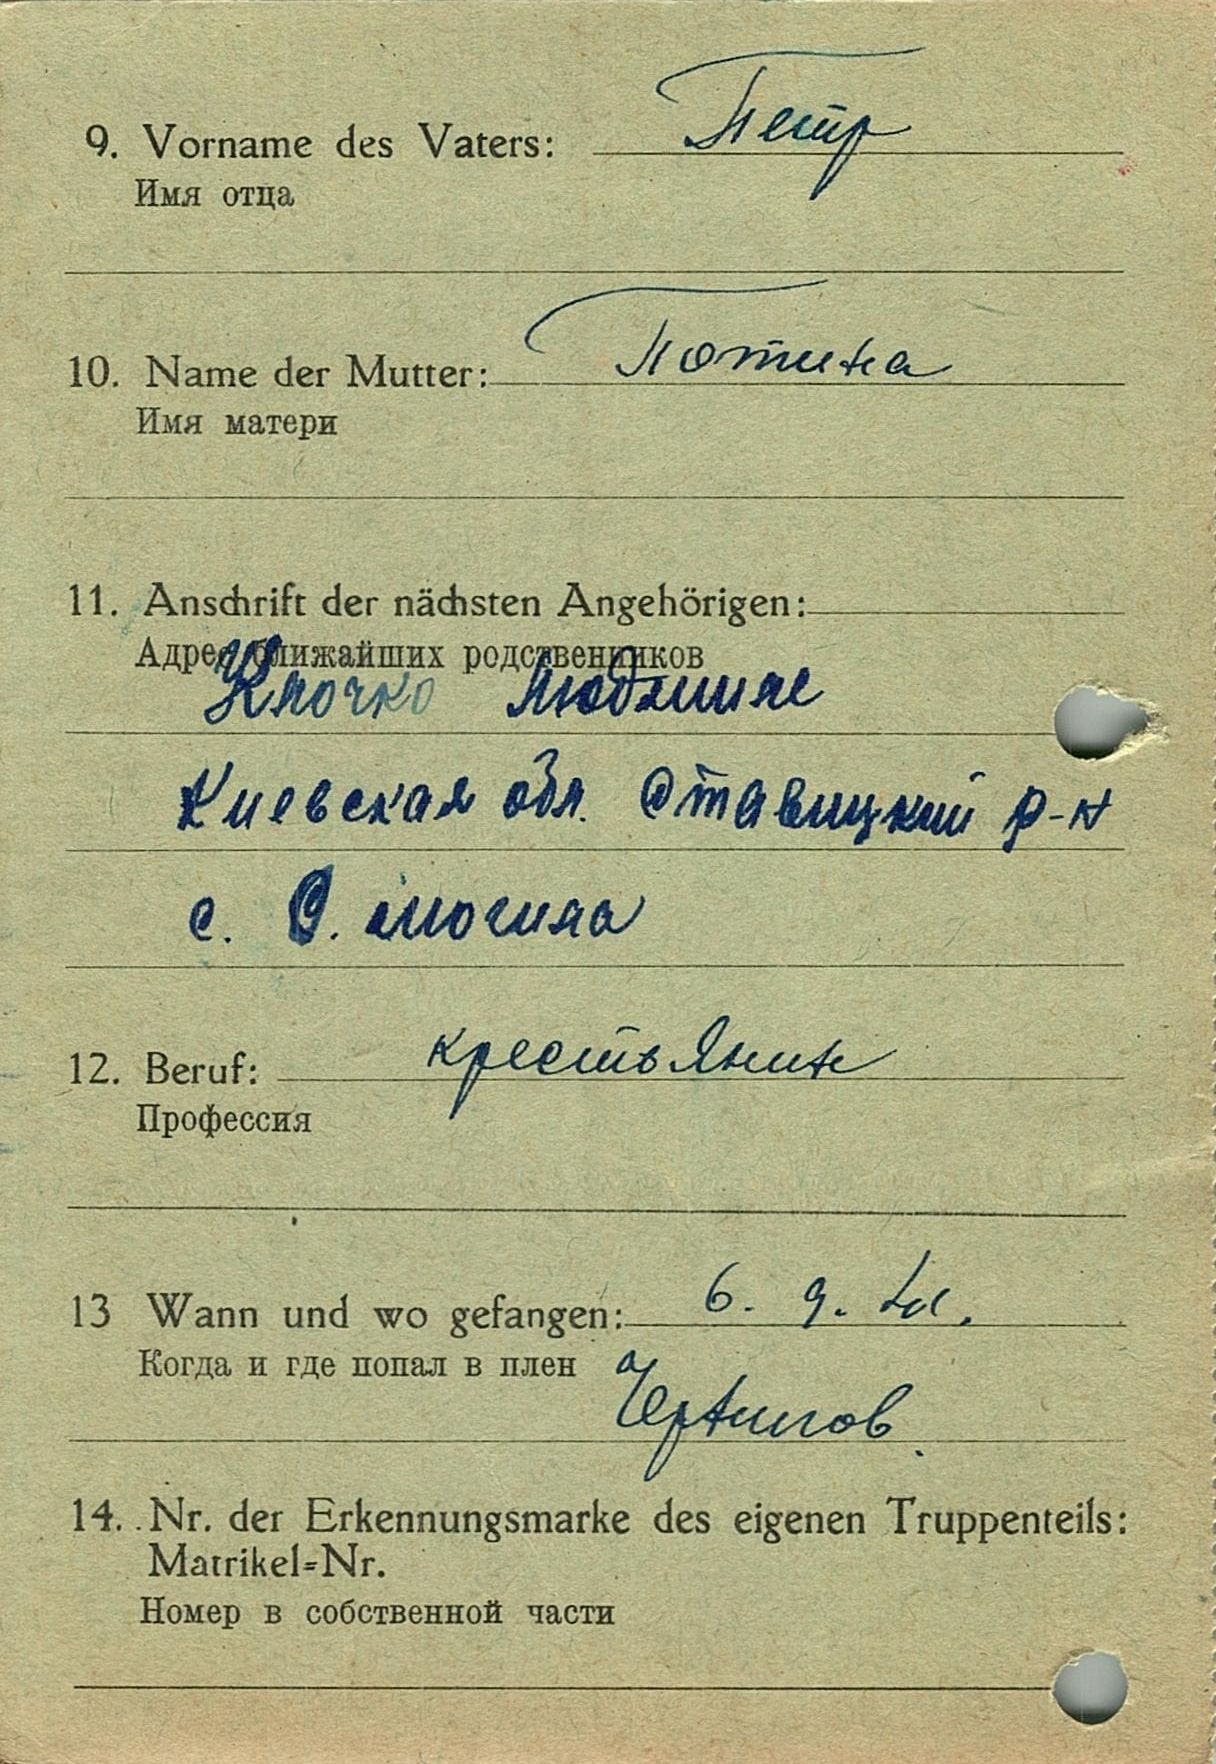 9. Vorname des Vaters: Петр
Имя отца
10. Name der Mutter: Потина
Имя матери
11. Anschrift der nächsten Angehörigen:
Адрес ближайших родственников
Клочко Людмиле
Киевская обл. Ставицкий р-н
с. С. могила
12. Beruf: крестьянин
Профессия
13 Wann und wo gefangen: 6. 9. 41.
Когда и где попал в плен
Чернигов
14. Nr. der Erkennungsmarke des eigenen Truppenteils:
Matrikel=Nr.
Номер в собственной части